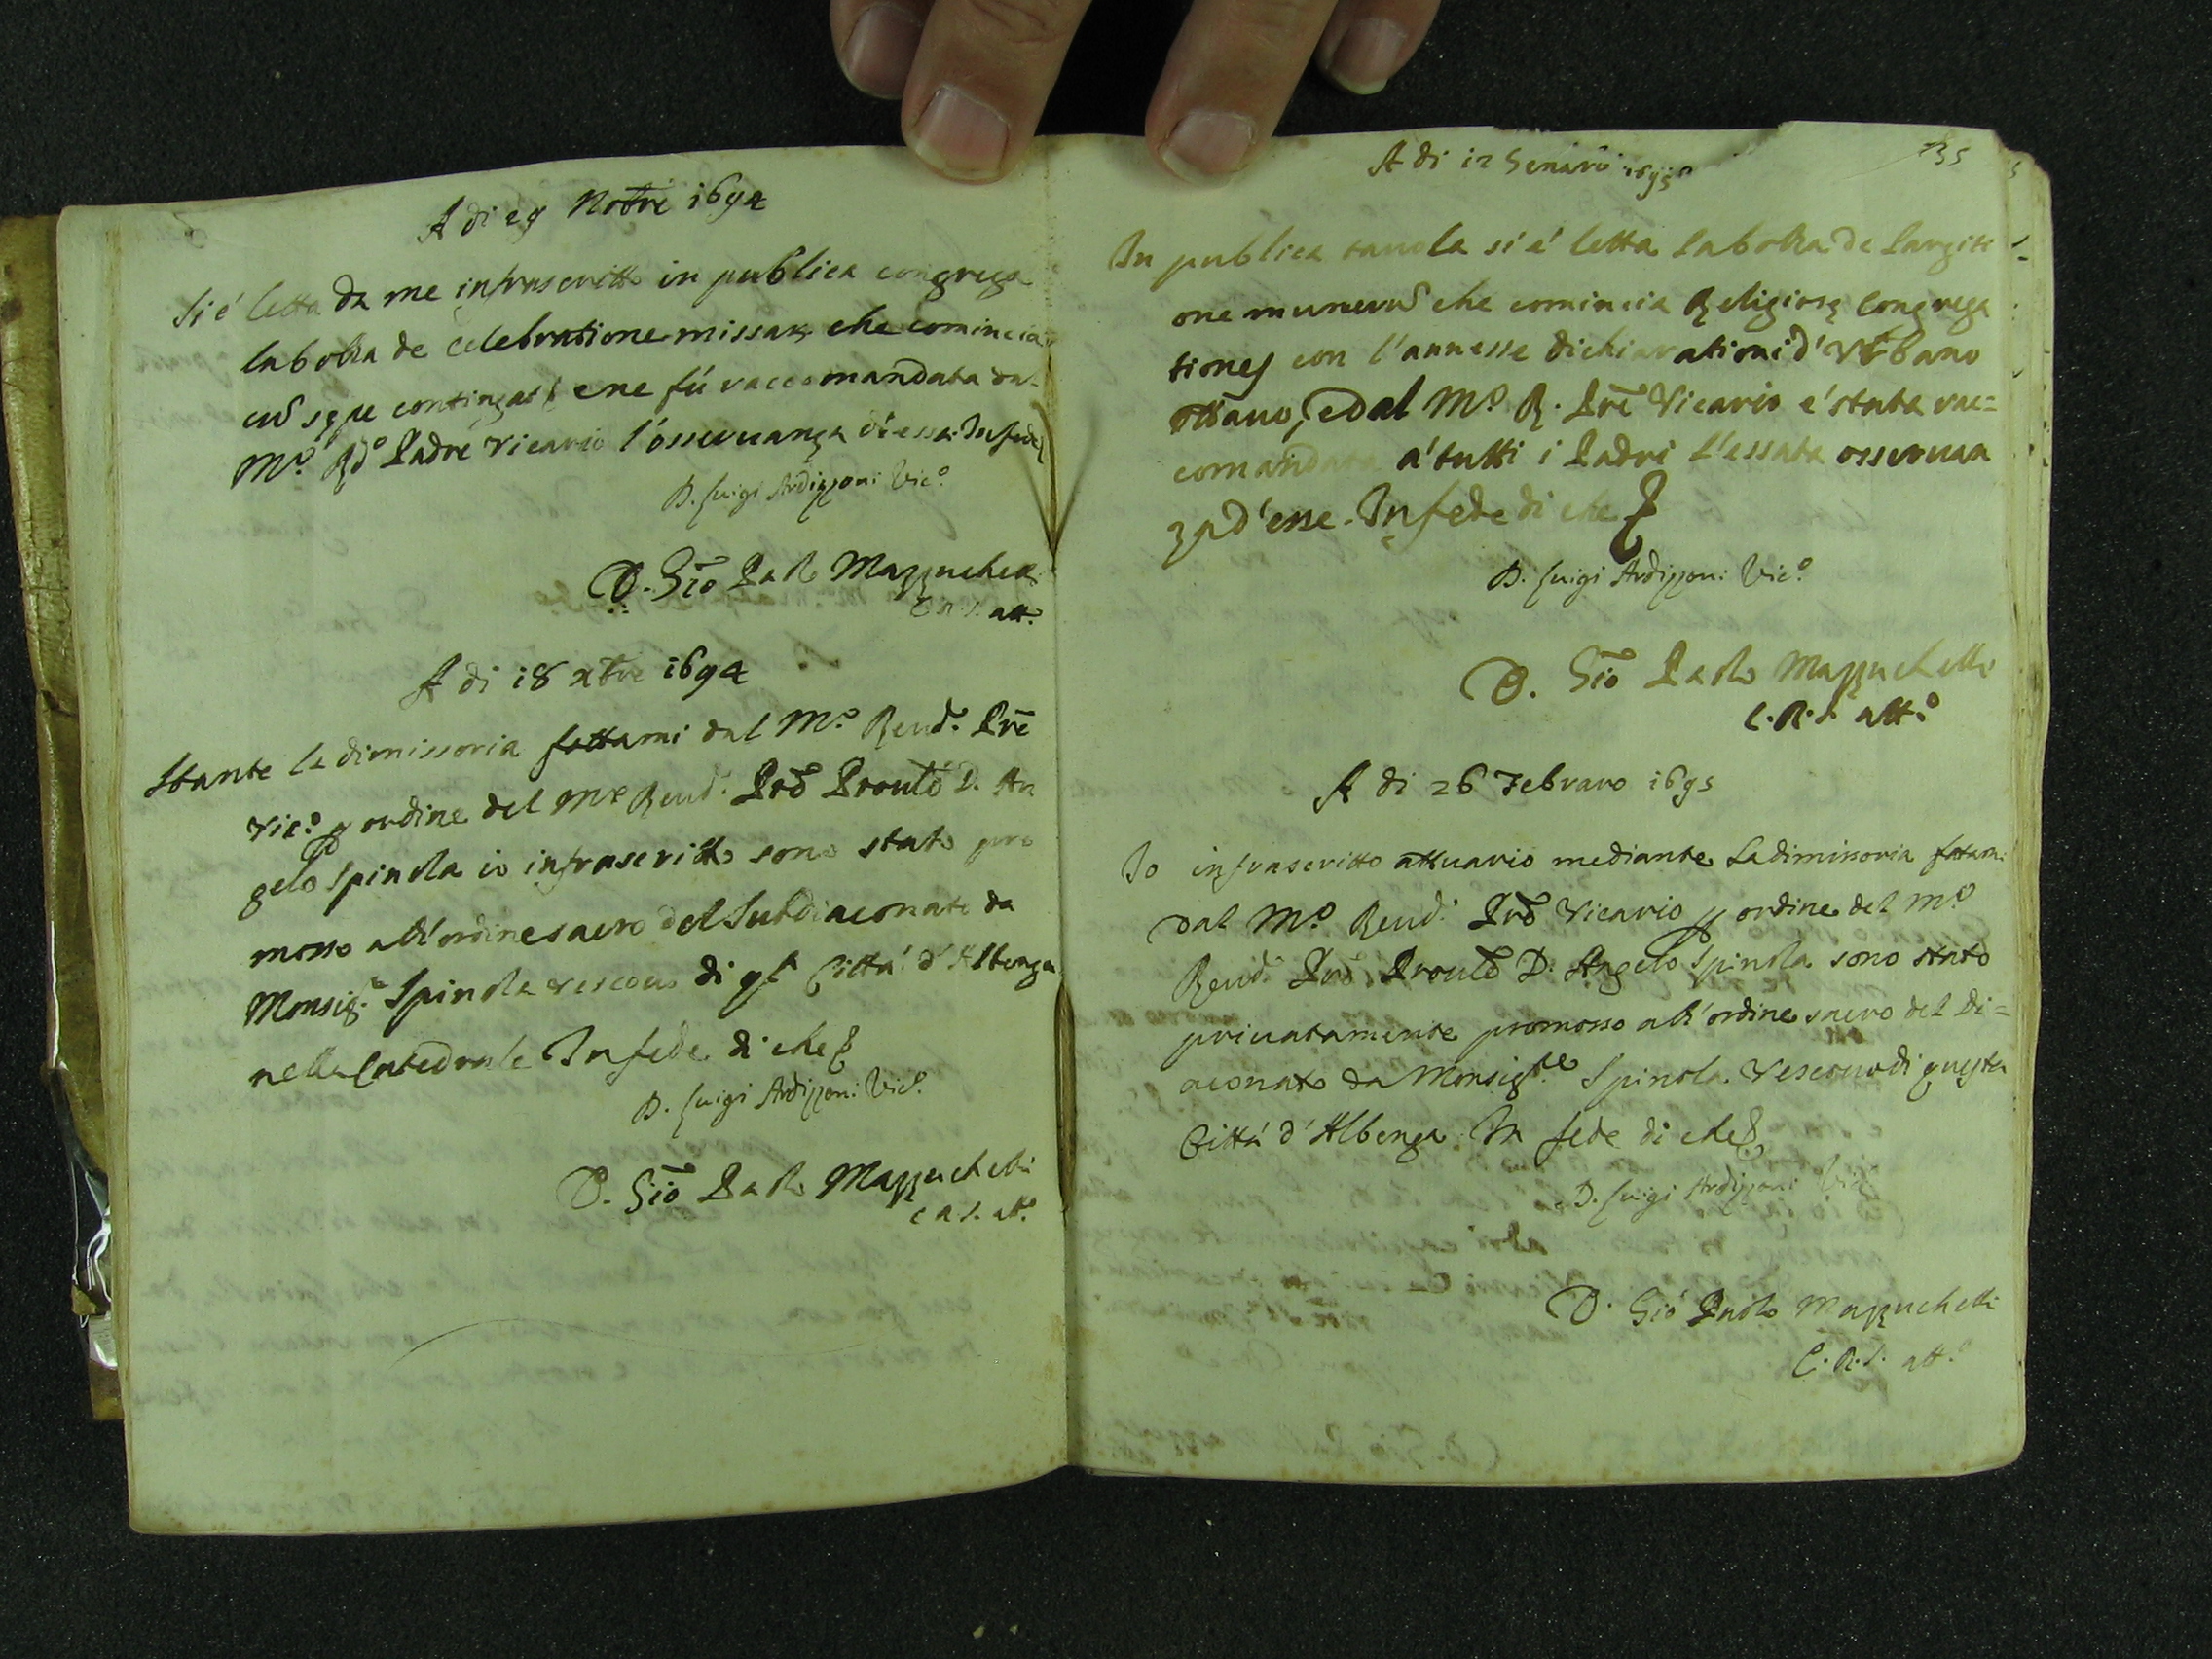 A di 29 Nobre 1694
Si é letta da me infrascritto in publica congrega
la bolla de celebratione missar. che comincia
cum sępe contingat, e ne fú raccomandata dal
Mo. Rdo Padre Vicario l'osseruanza di essa. In fede
D. Luigi Ardizzoni Vico.
D. Gio Paolo Mazzuchelli
C.R.S. att.
A di 18 xbre 1694
Stante la dimissoria fattami dal Mo. Reud. Pre
Vico. p ordine del Mo Reud. Prd Proulē D. An
gelo Spinola io infrascritto sono stato pro
mosso all'ordine sacro del Subdiaconato da
Monsigr. Spinola vescouo di qta Città d'Albenga
nella Catedrale In fede di che
D. Luigi Ardizzoni Vico.
D. Gio Paolo Mazzuchelli
C.R.S. atto.
A di 12 Genaro 1695
135
In publica tauola si é letta la bolla de largiti
one munerum che comincia Religiosę congrega
tiones con l'annesse dichiarationi d'Vrbano
ottauo, e dal Mo. R. Pre Vicario é stata rac=
comandata a' tutti i Padri l'essata osseruan
za d'esse. In fede di che
D. Luigi Ardizzoni Vico.
D. Gio Paolo Mazzuchelli
C.R.S. atto.
A di 26 Febraro 1695
Io infrascritto attuario mediante la dimissoria fattami
dal Mo. Reud. Prd Vicario p ordine del Mo
Reud. Prd Proulē D. Angelo Spinola sono stato
priuatamente promosso all'ordine sacro del Di=
aconato da Monsigre. Spinola Vescouo di questa
Città d'Albenga In fede di che
D. Luigi Ardizzoni Vico.
D. Gio Paolo Mazzuchelli
C.R.S. atto.